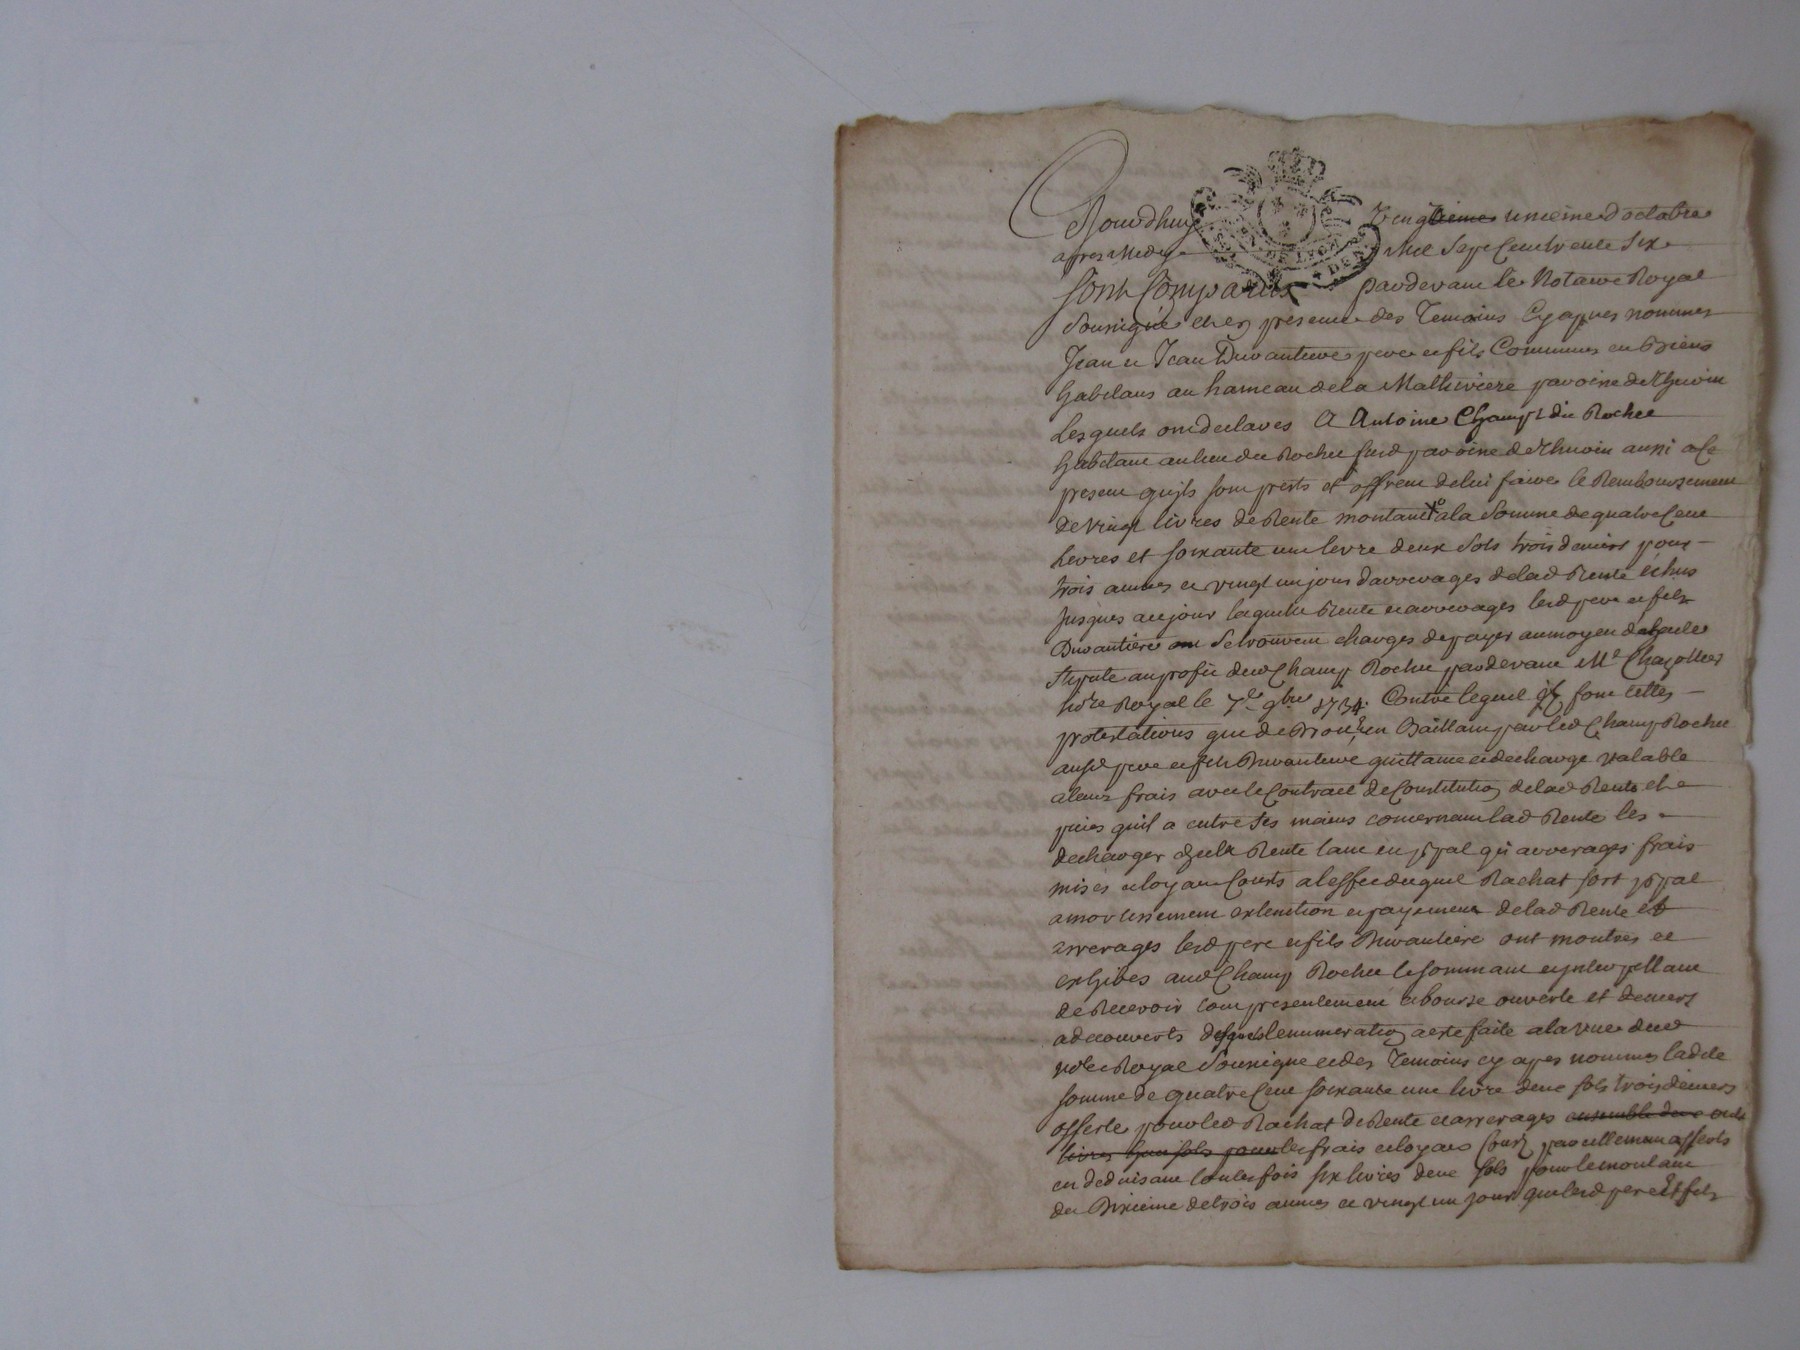 Aujourdhuy vingtieme unieme doctobre
apres midy mil sept cent trente six
sont comparus pardevant le Notaire Royal
soussigné et en presence des Temoins cy apres nommes
Jean et Jean Duvantiere pere et fils communs en Biens
habitans au hameau de la Mathiviere paroisse de
lesquels ont declares A Antoine Champt dit Rochee
habitant au lieu du Rochee susd paroisse de aussi a ce
present quils sont prests et offrent de lui faire le Remboursement
de vingt livres de Rente montant a la somme de quatre Cent
livres et soixante une livre deux sols trois deniers pour
trois annees et vingt un jours darrerages de lad Rente echus
jusques a ce jour laquelle Rente et arrerages lesd pere et fils
Duvantiere se trouvent charges de payer au moyen de
stipule au profit dud Champ Rochee pardevant Me Chazottier
nore Royal le 7e 9bre 1734. Contre lequel ils font telles
protestations que de Droit, en Baillant par led Champ Rochee
ausd pere et fils Duvantiere quittance et decharge valable
a leurs frais avec le Contract de Constitution de lad Rente et
pieces quil a entre ses mains concernant lad Rente les
decharger dicelle Rente tant en ppal qu arrerages frais
mises et loyaux Couts a leffet duquel Rachat sort ppal
amortissement extention et payement de lad Rente et
arrerages lesd pere et fils Duvantiere ont montres et
exhibes aud Champ Rochee le sommant et interpellant
de Recevoir tout presentement a bourse ouverte et deniers
a decouverts desquels lenumeration a este faite a la vue dud
nore Royal soussigne et des Temoins cy apres nommes ladte
somme de quatre Cent soixante une livre deux sols trois deniers
offerte pour led Rachat de Rente et arrerages ensemble
livres sols pour les frais et loyaux Couts pareillement offerts
en deduisant toutes fois six livres deux sols pour le montant
du Dixieme de trois annees et vingt un jour que lesd pere et fils